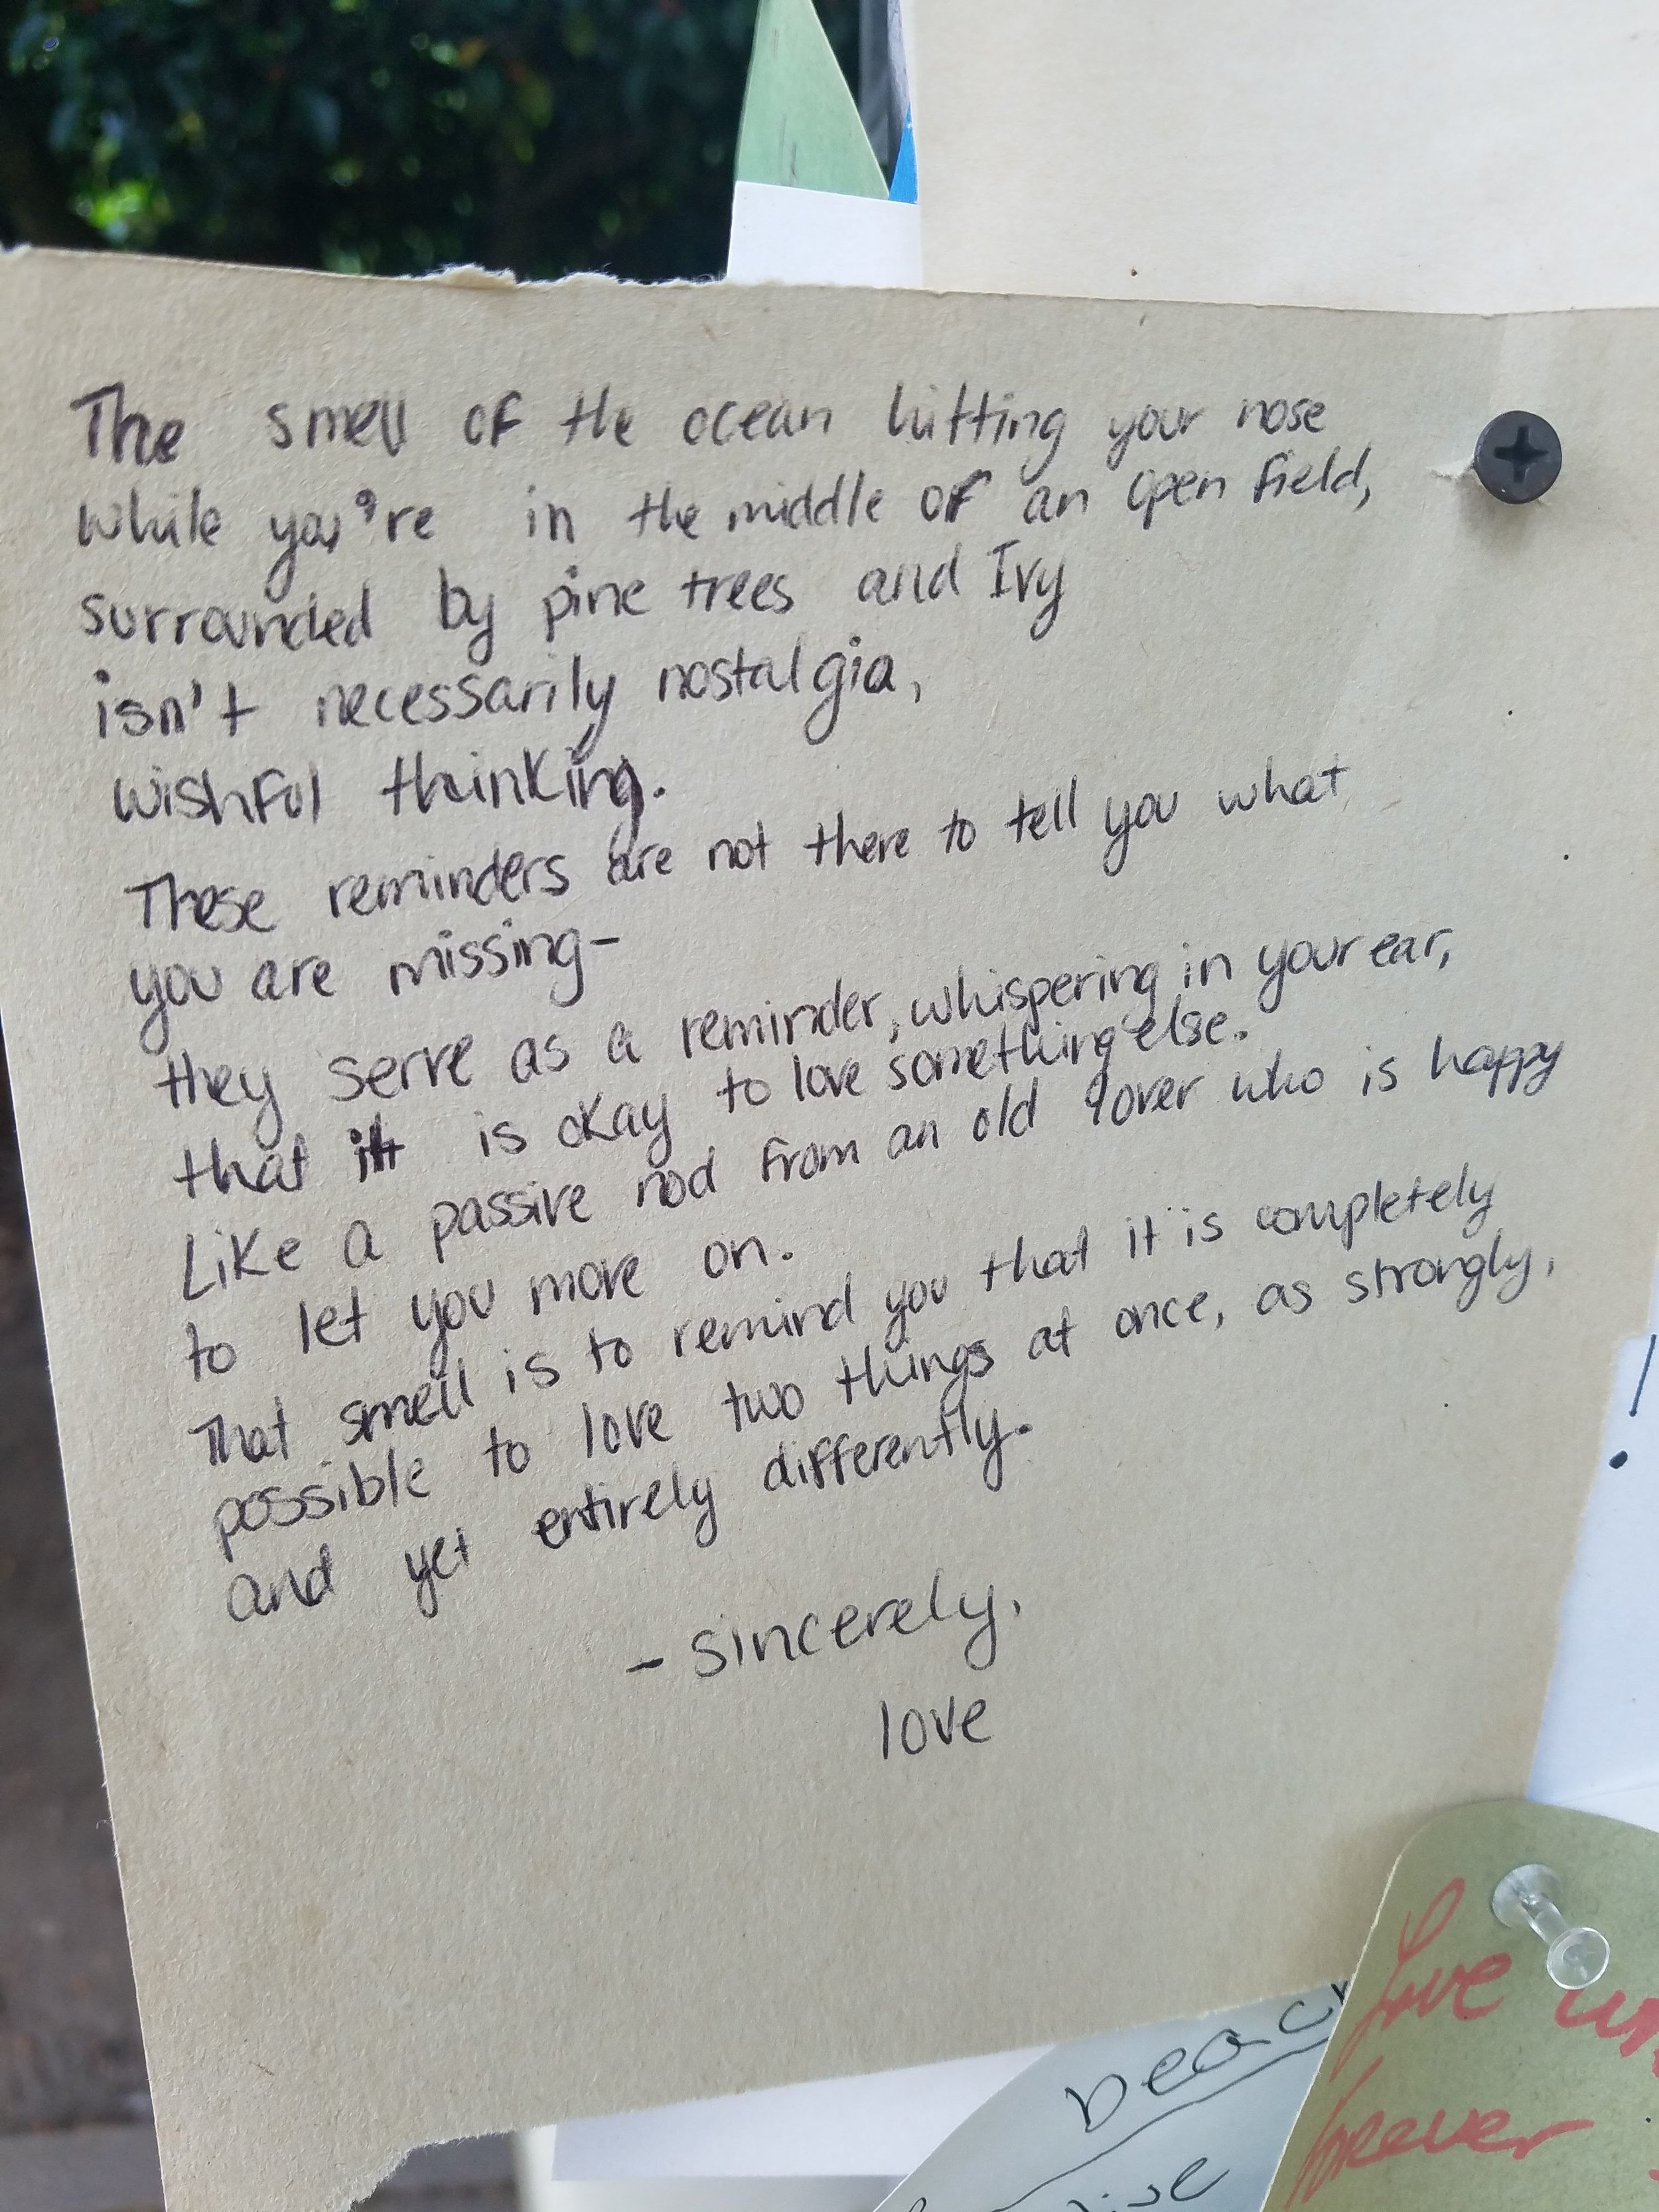 The smell of the ocean hitting your nose
while you're in the middle of an open field,
surrounded by pine trees and Ivy
isn't necessarily nostalgia,
wishful thinking.
These reminders are not there to tell you what
you are missing-
they serve as a reminder, whispering in your ear,
that it is okay to love something else.
Like a passive nod from an old lover who is happy
to let you move on.
That smell is to remind you that it is completely
possible to love two things at once, as strongly,
and yet entirely differently.
- sincerely,
love
!
Love
forever